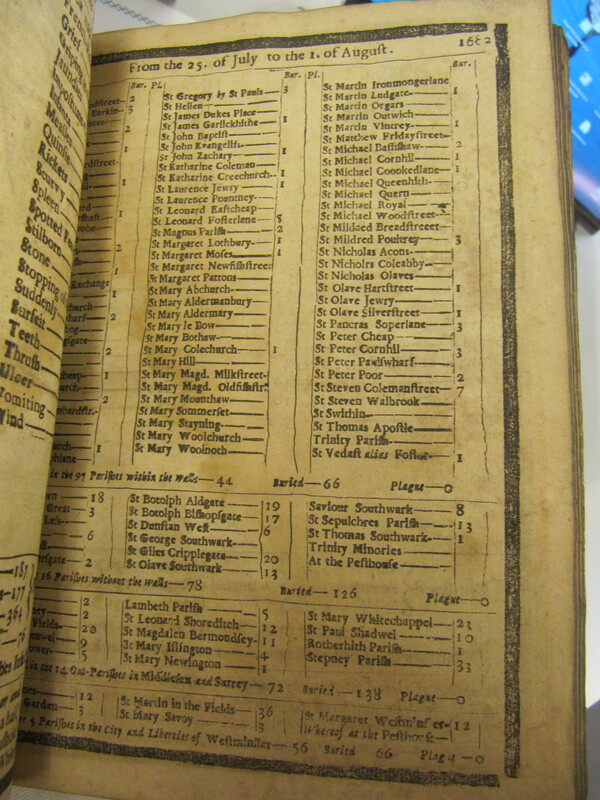 From the 25. of July to the 1. of August. 1682
Bur. Pl.
2
3
2
1
1
1
2
1
2
1
1
1
St Gregory by St Pauls 3
St Hellen
St James Dukes Place
St James Garlickhithe 1
St John Baptist
St John Evangelist
St John Zachary 1
St Katharine Coleman
St Katharine Creechurch 1
St Laurence Jewry 1
St Laurence Pountney
St Leonard Eastcheap
St Leonard Fosterlane 5
St Magnus Parish 2
St Margaret Lothbury 1
St Margaret Moses 1
St Margaret Newfishstreet
St Margaret Pattons
St Mary Abchurch
St Mary Aldermanbury
St Mary Aldermary
St Mary le Bow
St Mary Bothaw
St Mary Colechurch 1
St Mary Hill
St Mary Magd. Milkstreet
St Mary Magd. Oldfishstr.
St Mary Mounthaw
St Mary Sommerset
St Mary Stayning
St Mary Woolchurch
St Mary Woolnoth
Bur. Pl.
St Martin Ironmongerlane
St Martin Ludgate 1
St Martin Orgars
St Martin Outwich
St Martin Vintrey 1
St Matthew Fridaystreet
St Michael Bassishaw 2
St Michael Cornhil 1
St Michael Coookedlane 1
St Michael Queenhith
St Michael Quern
St Michael Royal
St Michael Woodstreet
St Mildred Breadstreet
St Mildred Poultrey 3
St Nicholas Acons
St Nicholrs Coleabby
St Nicholas Olaves
St Olave Hartstreet 1
St Olave Jewry
St Olave Silverstreet 1
St Pancras Soperlane 3
St Peter Cheap
St Peter Cornhil 3
St Peter Paulswharf
St Peter Poor 2
St Steven Colemanstreet 7
St Steven Walbrook
St Swithin
St Thomas Apostle
Trinity Parish
St Vedast alias Foster 1
Bur.
in the 97 Parishes within the Walls—44 Buried—66 Plague—0
18
Great 3
6
2
St Botolph Aldgate 19
St Botolph Bishopsgate 17
St Dunstan West 6
St George Southwark
St Giles Cripplegate 20
St Olave Southwark 13
Saviour Southwark 8
St Sepulchres Parish 13
St Thomas Southwark 1
Trinity Minories
At the Pesthouse
16 Parishes without the Walls—78 Buried—126 Plague—0
2
Fields 2
20
9
5
Lambeth Parish 5
St Leonard Shoreditch 12
St Magdalen Bermondsey 11
St Mary Islington 4
St Mary Newington 1
St Mary Whitechappel 23
St Paul Shadwel 10
Rotherhith Parish 1
Stepney Parish 33
in the 14 Out-Parishes in Middlesex and Surrey—72 Buried—138 Plague—0
12
Garden 3
St Martin in the Fields 36
St Mary Savoy 3
St Margaret Westminster 12
Whereof at the Pesthouse
5 Parishes in the City and Liberties of Westminster—56 Buried 66 Plague—0
Grief
Infants
Measles
Quinsie
Rickets
Scurvy
Spleen
Spotted
Stilborn
Stone
Stopping
Suddenly
Surfeit
Teeth
Thrush
Ulcer
Vomiting
Wind
187
177
364
76